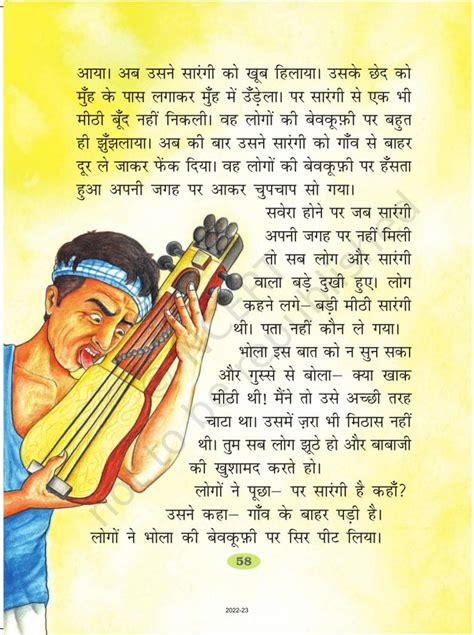 आया। अब उसने सारंगी को खूब हिलाया। उसके छेद को
मुँह के पास लगाकर मुँह में उँड़ेला। पर सारंगी से एक भी
मीठी बूँद नहीं निकली। वह लोगों की बेवकूफ़ी पर बहुत
ही झुँझलाया। अब की बार उसने सारंगी को गाँव से बाहर
दूर ले जाकर फेंक दिया। वह लोगों की बेवकूफ़ी पर हँसता
हुआ अपनी जगह पर आकर चुपचाप सो गया।
सवेरा होने पर जब सारंगी
अपनी जगह पर नहीं मिली
तो सब लोग और सारंगी
वाला बड़े दुखी हुए। लोग
कहने लगे– बड़ी मीठी सारंगी
थी। पता नहीं कौन ले गया।
भोला इस बात को न सुन सका
और गुस्से से बोला– क्या खाक
मीठी थी! मैंने तो उसे अच्छी तरह
चाटा था। उसमें ज़रा भी मिठास नहीं
थी। तुम सब लोग झूठे हो और बाबाजी
की खुशामद करते हो।
लोगों ने पूछा– पर सारंगी है कहाँ?
उसने कहा– गाँव के बाहर पड़ी है।
लोगों ने भोला की बेवकूफ़ी पर सिर पीट लिया।
58
2022-23
not to be republished